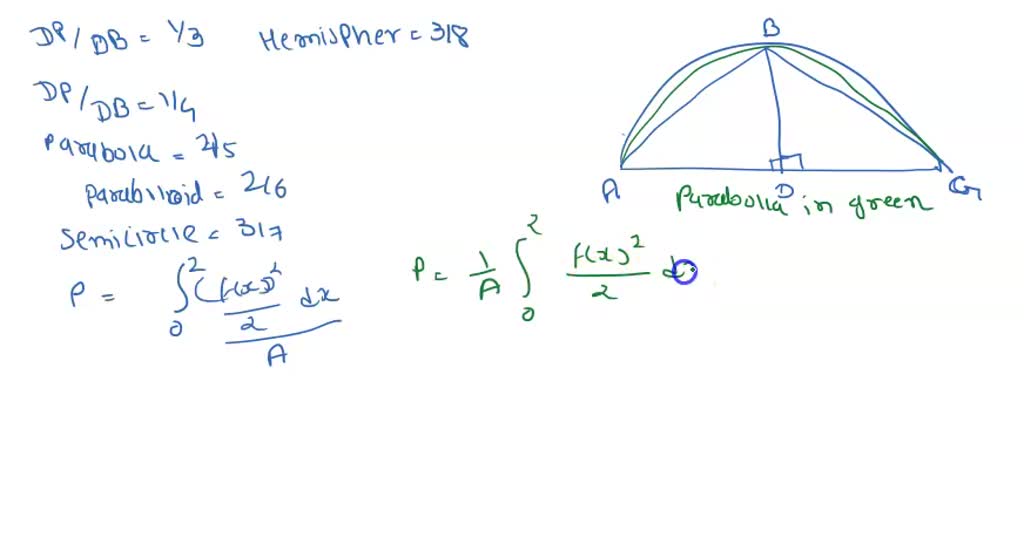 DP/DB = 1/3 Hemispher = 3/8
DP/DB = 1/4
Parabola = 2/5
Parabiloid = 2/6
Semicircle = 3/7
P = ∫₀² (f(x))²/2 dx / A
P = 1/A ∫₀² f(x)²/2 dx
B
A
D
G
Parabolla in green